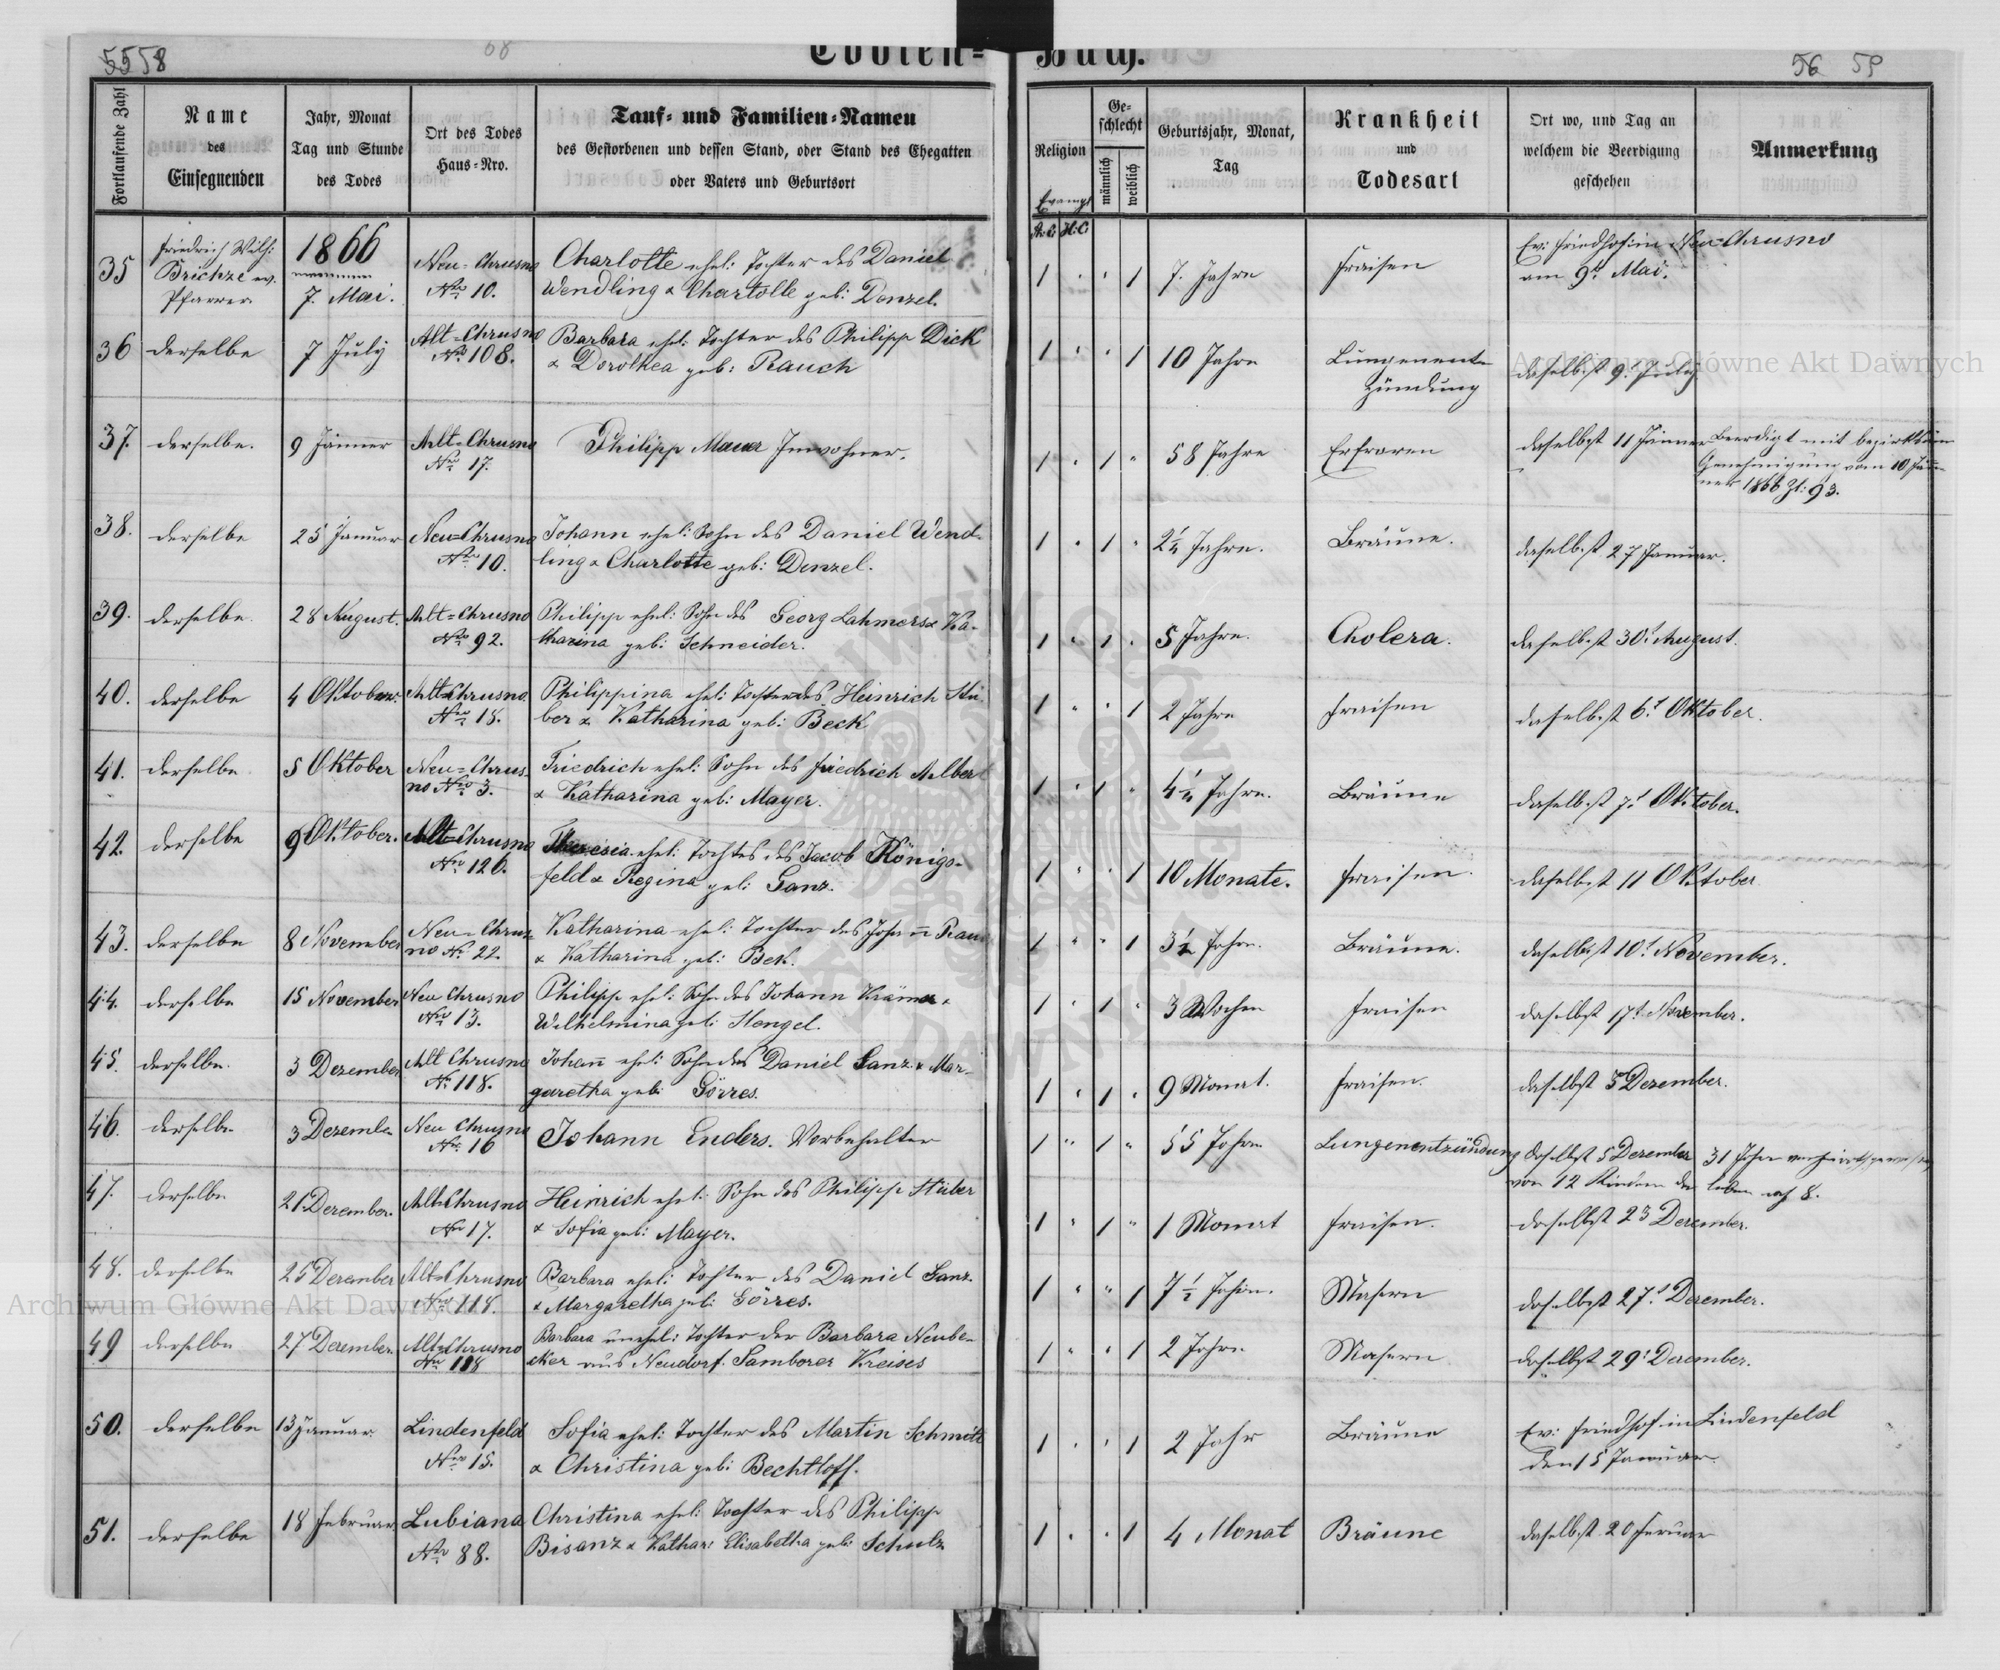 5558
Todten-Buch.
56 59
Fortlaufende Zahl
Name
des
Einsegnenden
Jahr, Monat
Tag und Stunde
des Todes
Ort des Todes
Haus-Nro.
Tauf- und Familien-Namen
des Gestorbenen und dessen Stand, oder Stand des Ehegatten
oder Vaters und Geburtsort
Religion
Evang.
A.C. H.C.
Ge-
schlecht
männlich
weiblich
Geburtsjahr, Monat,
Tag
Krankheit
und
Todesart
Ort wo, und Tag an
welchem die Beerdigung
geschehen
Anmerkung
35
Friedrich Wilh:
ev.
Pfarrer
1866
7. Mai.
Neu-Chrusno
Nro 10.
Charlotte ehel: Tochter des Daniel
Wendling & Charlotte geb: Denzel.
1 1
7. Jahre
Fraisen
Ev: Friedhof in Neu-Chrusno
am 9t Mai.
36 derselbe 7 July
Alt-Chrusno
Nro 108.
Barbara ehel: Tochter des Philipp Dick
& Dorothea geb: Rauch
1 1
10 Jahre
Lungenent-
zündung
daselbst 9t July
37. derselbe. 9 Jänner
Alt-Chrusno
Nro 17.
Philipp Mauer Inwohner.
1 1
58 Jahre
Erfroren
daselbst 11 Jänner
Beerdigt mit
Genehmigung vom 10 Jän-
ner 1866 Zl: 93.
38. derselbe 25 Januar
Neu-Chrusno
Nro 10.
Johann ehel: Sohn des Daniel Wend-
ling & Charlotte geb: Denzel.
1 1
2¼ Jahre.
Bräune.
daselbst 27 Januar.
39. derselbe. 28 August.
Alt-Chrusno
Nro 92.
Philipp ehel: Sohn des Georg Lahmers & Ka-
tharina geb: Schneider.
1 1
5 Jahre.
Cholera.
daselbst 30t August.
40. derselbe 4 Oktober.
Alt-Chrusno
Nro 15.
Philippina ehel: Tochter des Heinrich Stü-
ber & Katharina geb: Beck
1 1
2 Jahre
Fraisen
daselbst 6t Oktober.
41. derselbe 5 Oktober
Neu-Chrus-
no Nro 3.
Friedrich ehel: Sohn des Friedrich Albert
& Katharina geb: Mayer.
1 1
4¼ Jahre.
Bräune
daselbst 7t Oktober.
42. derselbe 9 Oktober.
Alt-Chrusno
Nro 126.
Theresia ehel: Tochter des Jacob Königs-
feld & Regina geb: Ganz.
1 1
10 Monate.
Fraisen.
daselbst 11 Oktober
43. derselbe 8 November
Neu-Chrus-
no Nr. 22.
Katharina ehel: Tochter des Johann
& Katharina geb: Bek.
1 1
3½ Jahre.
Bräune.
daselbst 10t November.
44. derselbe 15 November
Neu Chrusno
Nro 13.
Philipp ehel: Sohn des Johann Krämer &
Wilhelmina geb: Hengel.
1 1
3 Wochen
Fraisen
daselbst 17t November.
45. derselbe. 3 Dezember
Alt Chrusno
Nr. 118.
Johann ehel: Sohn des Daniel Ganz & Mar-
garetha geb: Görres.
1 1
9 Monat.
Fraisen.
daselbst 5 Dezember.
46. derselbe 3 Dezember
Neu Chrusno
Nro 16
Johann Enders. Vorbehalter
1 1
55 Jahre
Lungenentzündung
daselbst 5 Dezember
31 Jahre verheirathet gewesen
von 12 Kindern leben noch 8.
47. derselbe 21 Dezember.
Alt-Chrusno
Nro 17.
Heinrich ehel: Sohn des Philipp Stüber
& Sofia geb: Mayer.
1 1
1 Monat
Fraisen.
daselbst 23 Dezember.
48. derselbe 25 Dezember
Alt-Chrusno
Nro 118.
Barbara ehel: Tochter des Daniel Ganz
& Margaretha geb: Görres.
1 1
7½ Jahre.
Masern
daselbst 27t Dezember.
49 derselbe 27 Dezember
Alt-Chrusno
Nro 118
Barbara unehel: Tochter der Barbara Neube-
cker aus Neudorf. Samborer Kreises
1 1
2 Jahre
Masern
daselbst 29t Dezember.
50. derselbe 13 Januar
Lindenfeld
Nro 15.
Sofia ehel: Tochter des Martin Schmitt
& Christina geb: Bechtloff.
1 1
2 Jahr
Bräune
Ev: Friedhof in Lindenfeld
den 15 Januar
51. derselbe 18 Februar
Lubiana
Nro 88.
Christina ehel: Tochter des Philipp
Bisanz & Kathar: Elisabetha geb: Schulz
1 1
4 Monat
Bräune
daselbst 20 Feruar
Archiwum Główne Akt Dawnych
Archiwum Główne Akt Dawnych